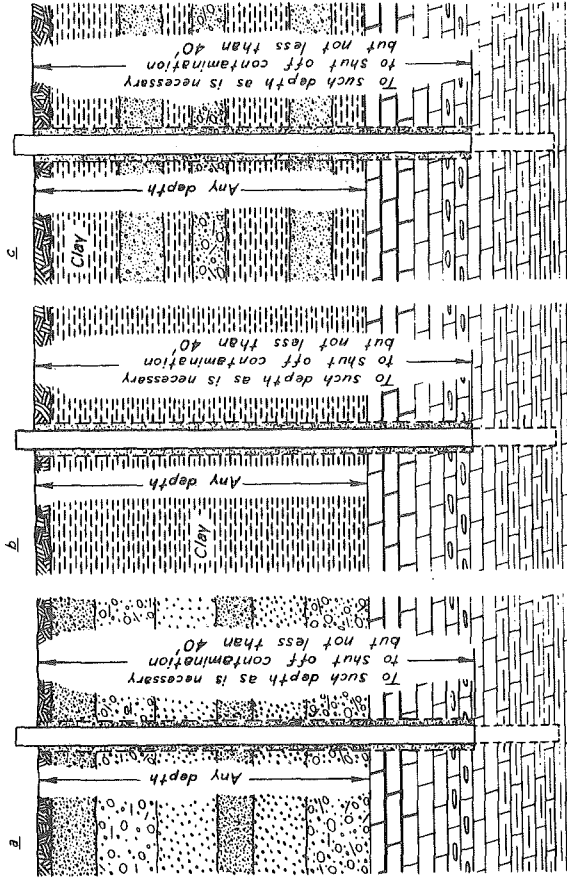 a
Any depth
To such depth as is necessary
to shut off contamination
but not less than 40'
b
Any depth
Clay
To such depth as is necessary
to shut off contamination
but not less than 40'
c
Any depth
Clay
To such depth as is necessary
to shut off contamination
but not less than 40'